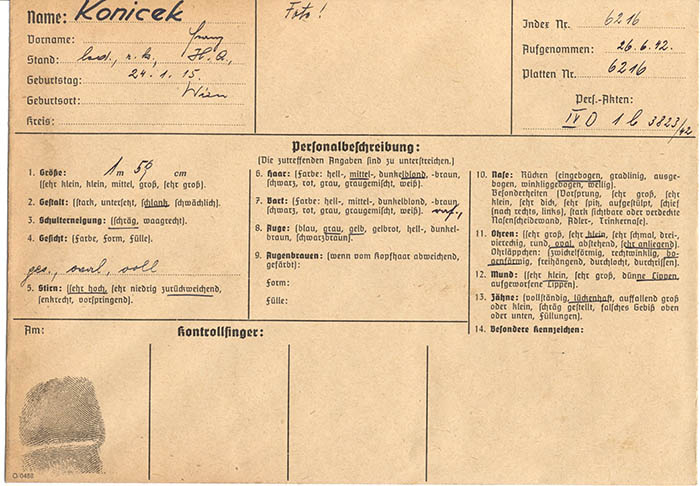 Name: Konicek
Vorname: Franz
Stand: led., r. k., H. A.,
Geburtstag: 24. 1. 15.
Geburtsort: Wien
Kreis:
Foto!
Index Nr. 6216
Aufgenommen: 26. 6. 42.
Platten Nr. 6216
Pers.-Akten:
IV D 1 b 3823/42
Personalbeschreibung:
(Die zutreffenden Angaben sind zu unterstreichen.)
1. Größe: 1 m 59 cm
(sehr klein, klein, mittel, groß, sehr groß).
2. Gestalt: (stark, untersetzt, schlank, schwächlich).
3. Schulterneigung: (schräg, waagrecht).
4. Gesicht: (Farbe, Form, Fülle).
ges., oval, voll
5. Stirn: (sehr hoch, sehr niedrig zurückweichend,
senkrecht, vorspringend).
6. Haar: (Farbe: hell-, mittel-, dunkelblond, -braun,
schwarz, rot, grau, graugemischt, weiß).
7. Bart: (Farbe: hell-, mittel-, dunkelblond, -braun,
schwarz, rot, grau, graugemischt, weiß). ras.,
8. Auge: (blau, grau, gelb, gelbrot, hell-, dunkel-
braun, schwarzbraun).
9. Augenbrauen: (wenn vom Kopfhaar abweichend,
gefärbt):
Form:
Fülle:
10. Nase: Rücken (eingebogen, gradlinig, ausge-
bogen, winkliggebogen, wellig).
Besonderheiten (Vorsprung, sehr groß, sehr
klein, sehr dick, sehr spitz, aufgestülpt, schief
(nach rechts, links), stark sichtbare oder verdeckte
Nasenscheidewand, Adler-, Trinkernase).
11. Ohren: (sehr groß, sehr klein, sehr schmal, drei-,
viereckig, rund, oval, abstehend, sehr anliegend).
Ohrläppchen: (zwickelförmig, rechtwinklig, bo-
genförmig, freihängend, durchlocht, durchrissen).
12. Mund: (sehr klein, sehr groß, dünne Lippen,
aufgeworfene Lippen).
13. Zähne: (vollständig, lückenhaft, auffallend groß
oder klein, schräg gestellt, falsches Gebiß oben
oder unten, Füllungen).
14. Besondere Kennzeichen:
Am:
Kontrollfinger:
O 0488